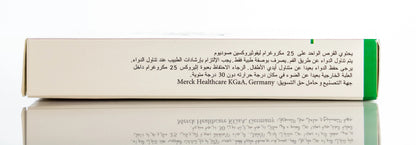 يحتوي القرص الواحد على 25 مكروغرام ليفوثيروكسين صوديوم
يتم تناول الدواء عن طريق الفم. يصرف بوصفة طبية فقط. يجب الإلتزام بإرشادات الطبيب عند تناول الدواء.
يرجى حفظ الدواء بعيدا عن متناول أيدي الأطفال. الرجاء الاحتفاظ بعبوة إليروكس 25 مكروغرام داخل
العلبة الخارجية بعيدا عن الضوء في مكان حرارته دون 30 درجة مئوية.
جهة التصنيع و حامل حق التسويق: Merck Healthcare KGaA, Germany